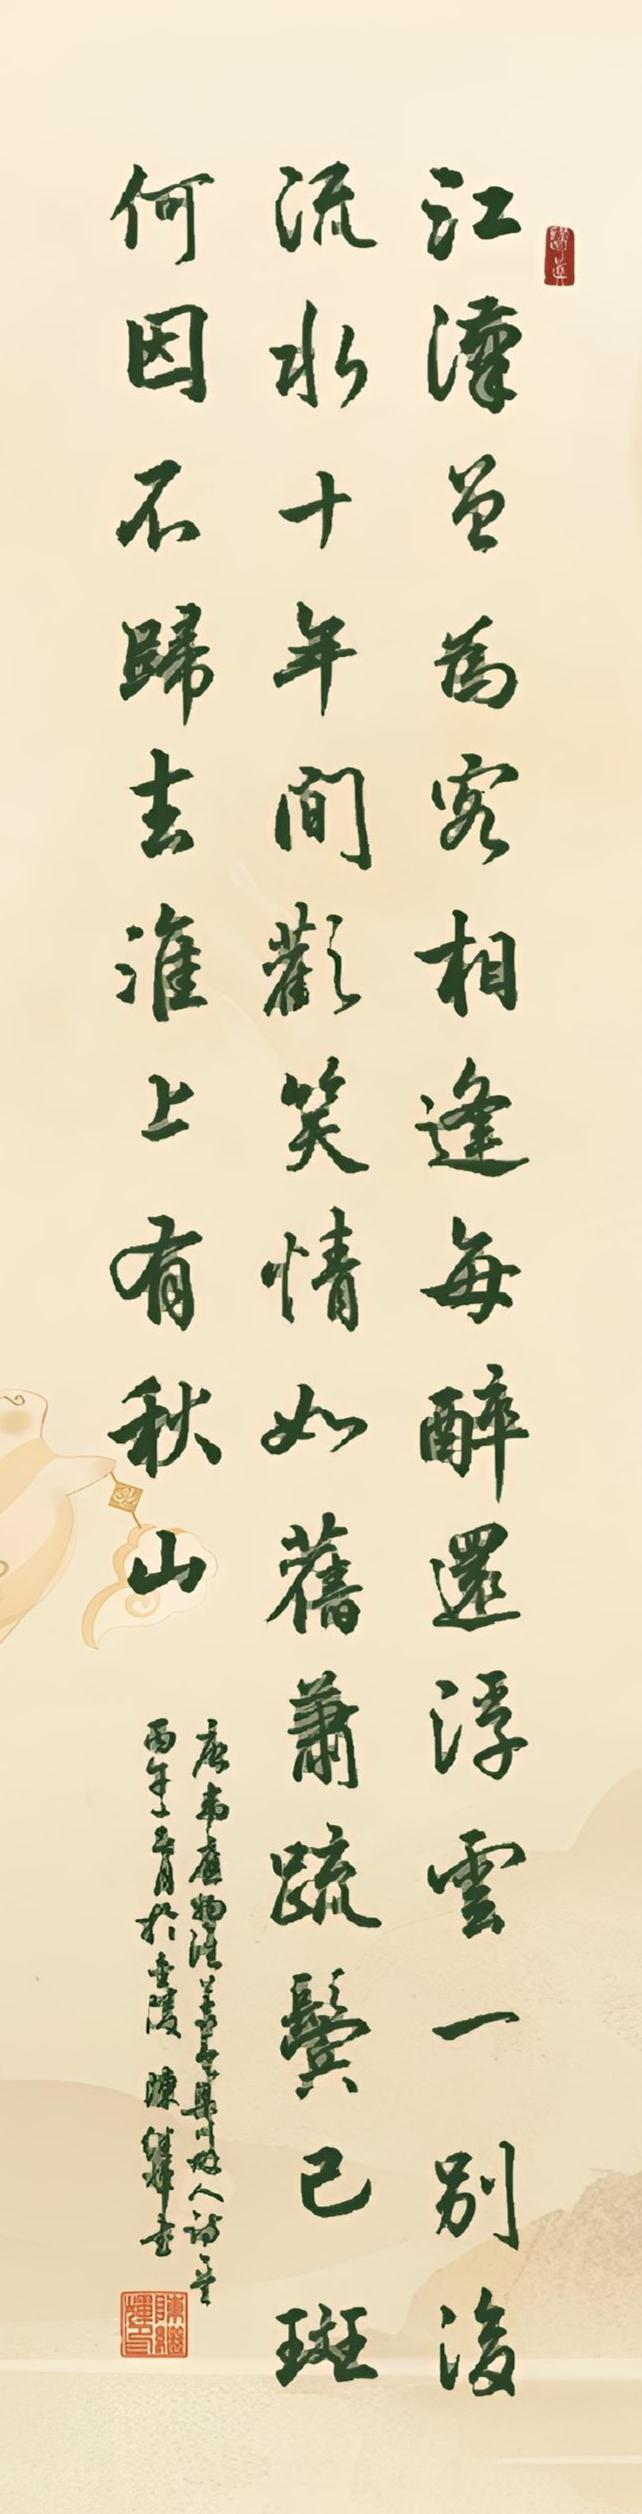 江漢曾為客相逢每醉還浮雲一別後
流水十年間歡笑情如舊蕭疏鬢已斑
何因不歸去淮上有秋山
唐韋應物淮上喜會梁川故人詩一首
丙午二月於金陵 陳繼輝書